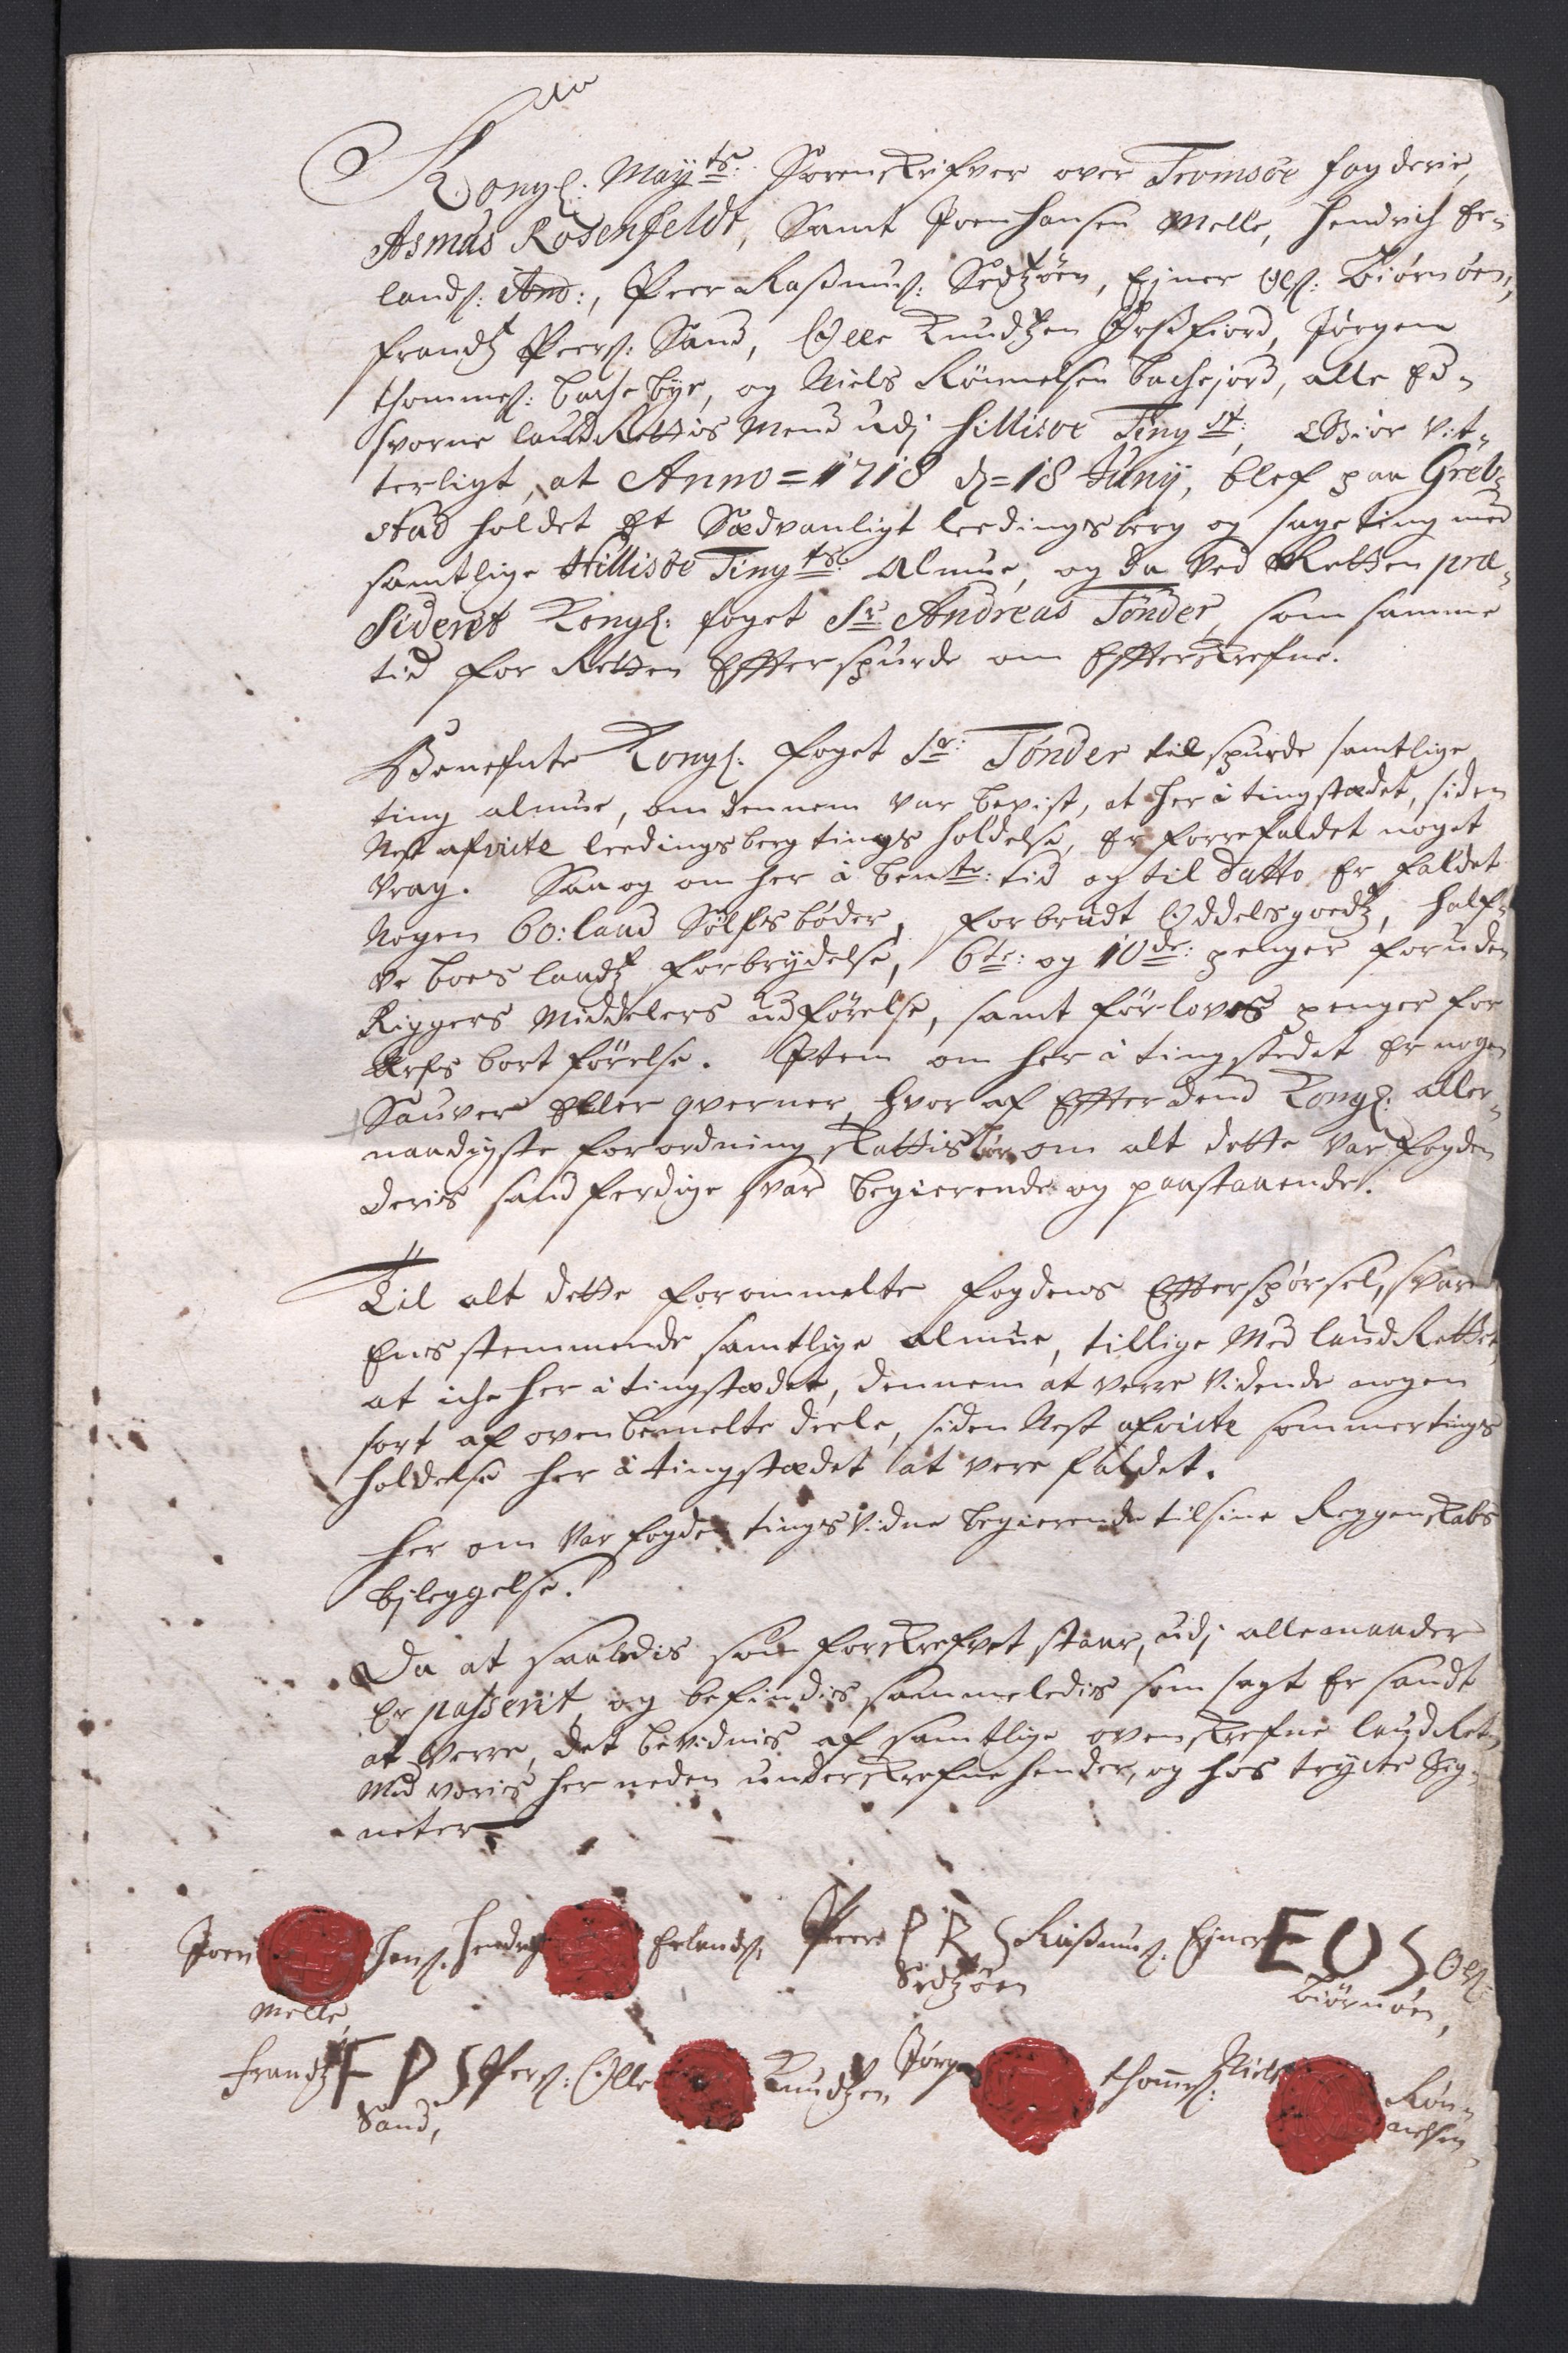 Kongl: Maÿts: Sorenskrifver over Tromsöe fogderie,
Asmus Rosenfeldt, Samt Joen Hansen Melle, Hendrich Er-
lands: ibid:, Peer Rasmus: Sedtzöen, Ejner Ols: Biörnöen,
Frandtz Peers: Sand, Olle Knudtzen Örsfiord, Jörgen
Thommes: Bachebye, og Niels Rönnelsen Bachejord, alle Ed-
svorne laudRettis Mend udj Hillisöe Tingst:, Giör vit-
terligt, at Anno = 1718 d: = 18 Junÿ, blef paa Greb-
stad holdet Et Sædvanligt leedingsberg og sageting med
samtlige Hillisöe Tingts: Almue, og da ved Retten præ-
siderit Kongl: foget Sr: Andreas Tönder, som samme
tid for Retten Efterspurde om Efterskrefne.
Benefnte Kongl: foget Sr: Tönder tilspurde samtlige
ting almue, om dennem var bevist, at her i tingstædet, siden
Nest afvicte leedingsberg tings holdelse, Er forrefaldet noget
Vrag. Saa og om her i bente: tid og til datto Er faldet
Nogen 60: laud Sölfs böder, forbrudt Oddelsgoedtz, half-
ve boes laadtz forbrydelse, 6te: og 10de: penger foruden
Riggers Middelers udförelse, samt förlovs penger for
Arfs bort förelse. Item om her i tingstedet Er nogen
Sauver Eller qverner, hvor af Efter dend Kongl: aller-
naadigste forordning skattis bör, om alt dette var fogden
deris sandferdige svar begierende og paastaaende.
Til alt dette forommelte fogdens Efterspörsel, svared
Ens stemmende samtlige almue, tillige Med laudRettet,
at iche her i tingstædet, dennem at verre vidende nogen
sort af ovenbemelte deele, siden Nest afvicte sommertings
holdelse her i tingstædet at vere faldet.
Her om var fogden tingsvidne begierende til sine Reggenskabs
bjleggelse.
Da at saaledis som forskrefvet staar, udj alle maader
Er passerit, og befindis sammeledis som sagt Er sandt
at Verre, det bevidnis af samtlige ovenskrefne laudRet,
Med voris her neden underskrefne hender, og hos trycte Sig-
neter
Joen Hans: Hendrich Erlands: Peer P R S Rasmus: Ejner E O S Ols:
Melle, Sedtzöen Biörnöen,
Frandtz F P S Pers: Olle Knudtzen Jörgen Thommes: Niels Rön-
Sand, nelsen